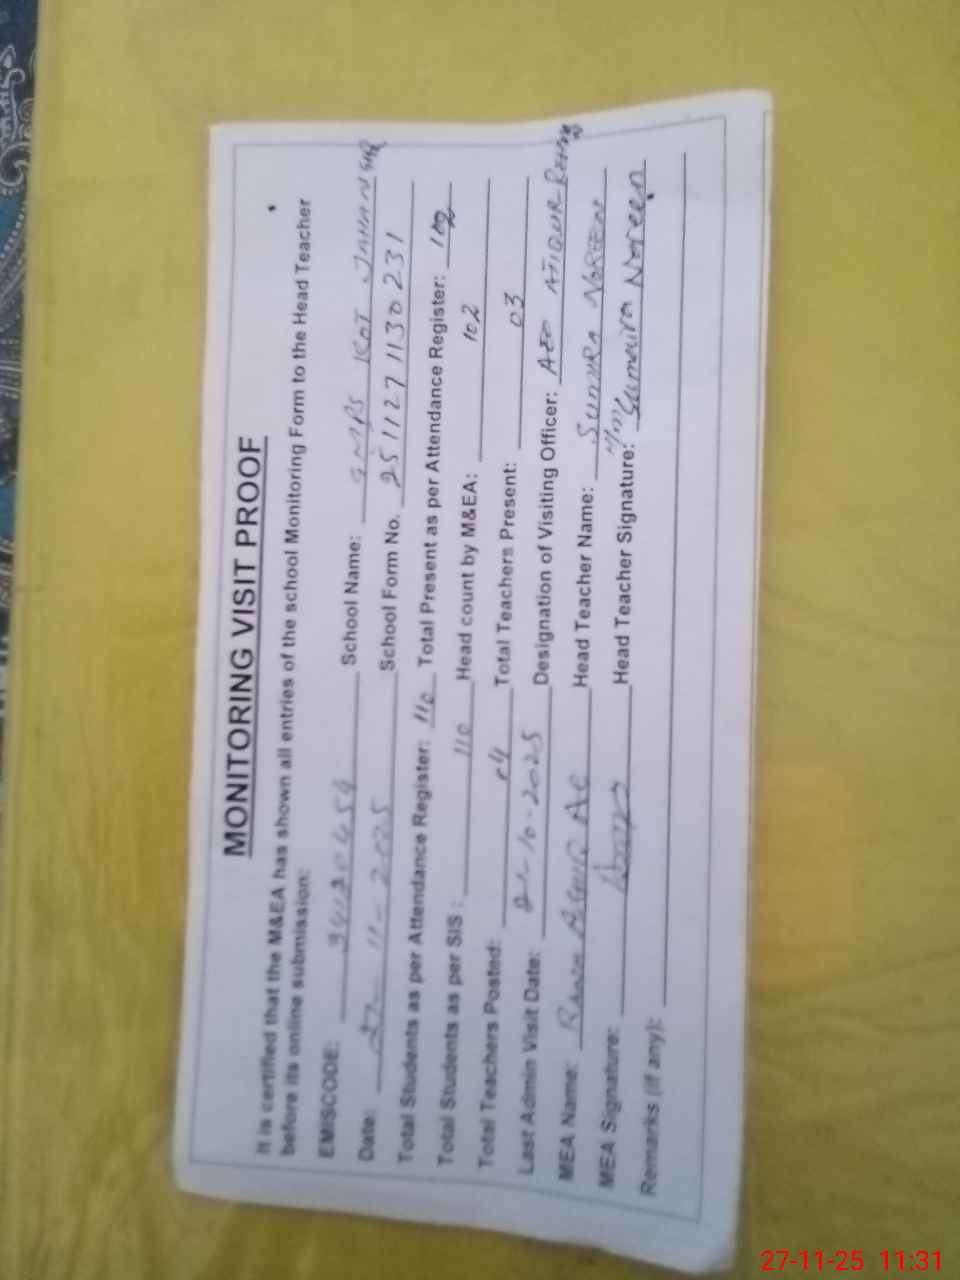 MONITORING VISIT PROOF
It is certified that the M&EA has shown all entries of the school Monitoring Form to the Head Teacher
before its online submission:
EMISCODE: School Name: GMPS KOT JAHANGIR
Date: 27-11-2025 School Form No. 2511271130231
Total Students as per Attendance Register: 110 Total Present as per Attendance Register: 102
Total Students as per SIS : 110 Head count by M&EA: 102
Total Teachers Posted: 04 Total Teachers Present: 03
Last Admin Visit Date: 21-10-2025 Designation of Visiting Officer: AEO ATIQUR REHMAN
MEA Name: Head Teacher Name: SUMIRA NOREEN
MEA Signature: Head Teacher Signature: Sumaira Noreen
Remarks (if any):
27-11-25 11:31